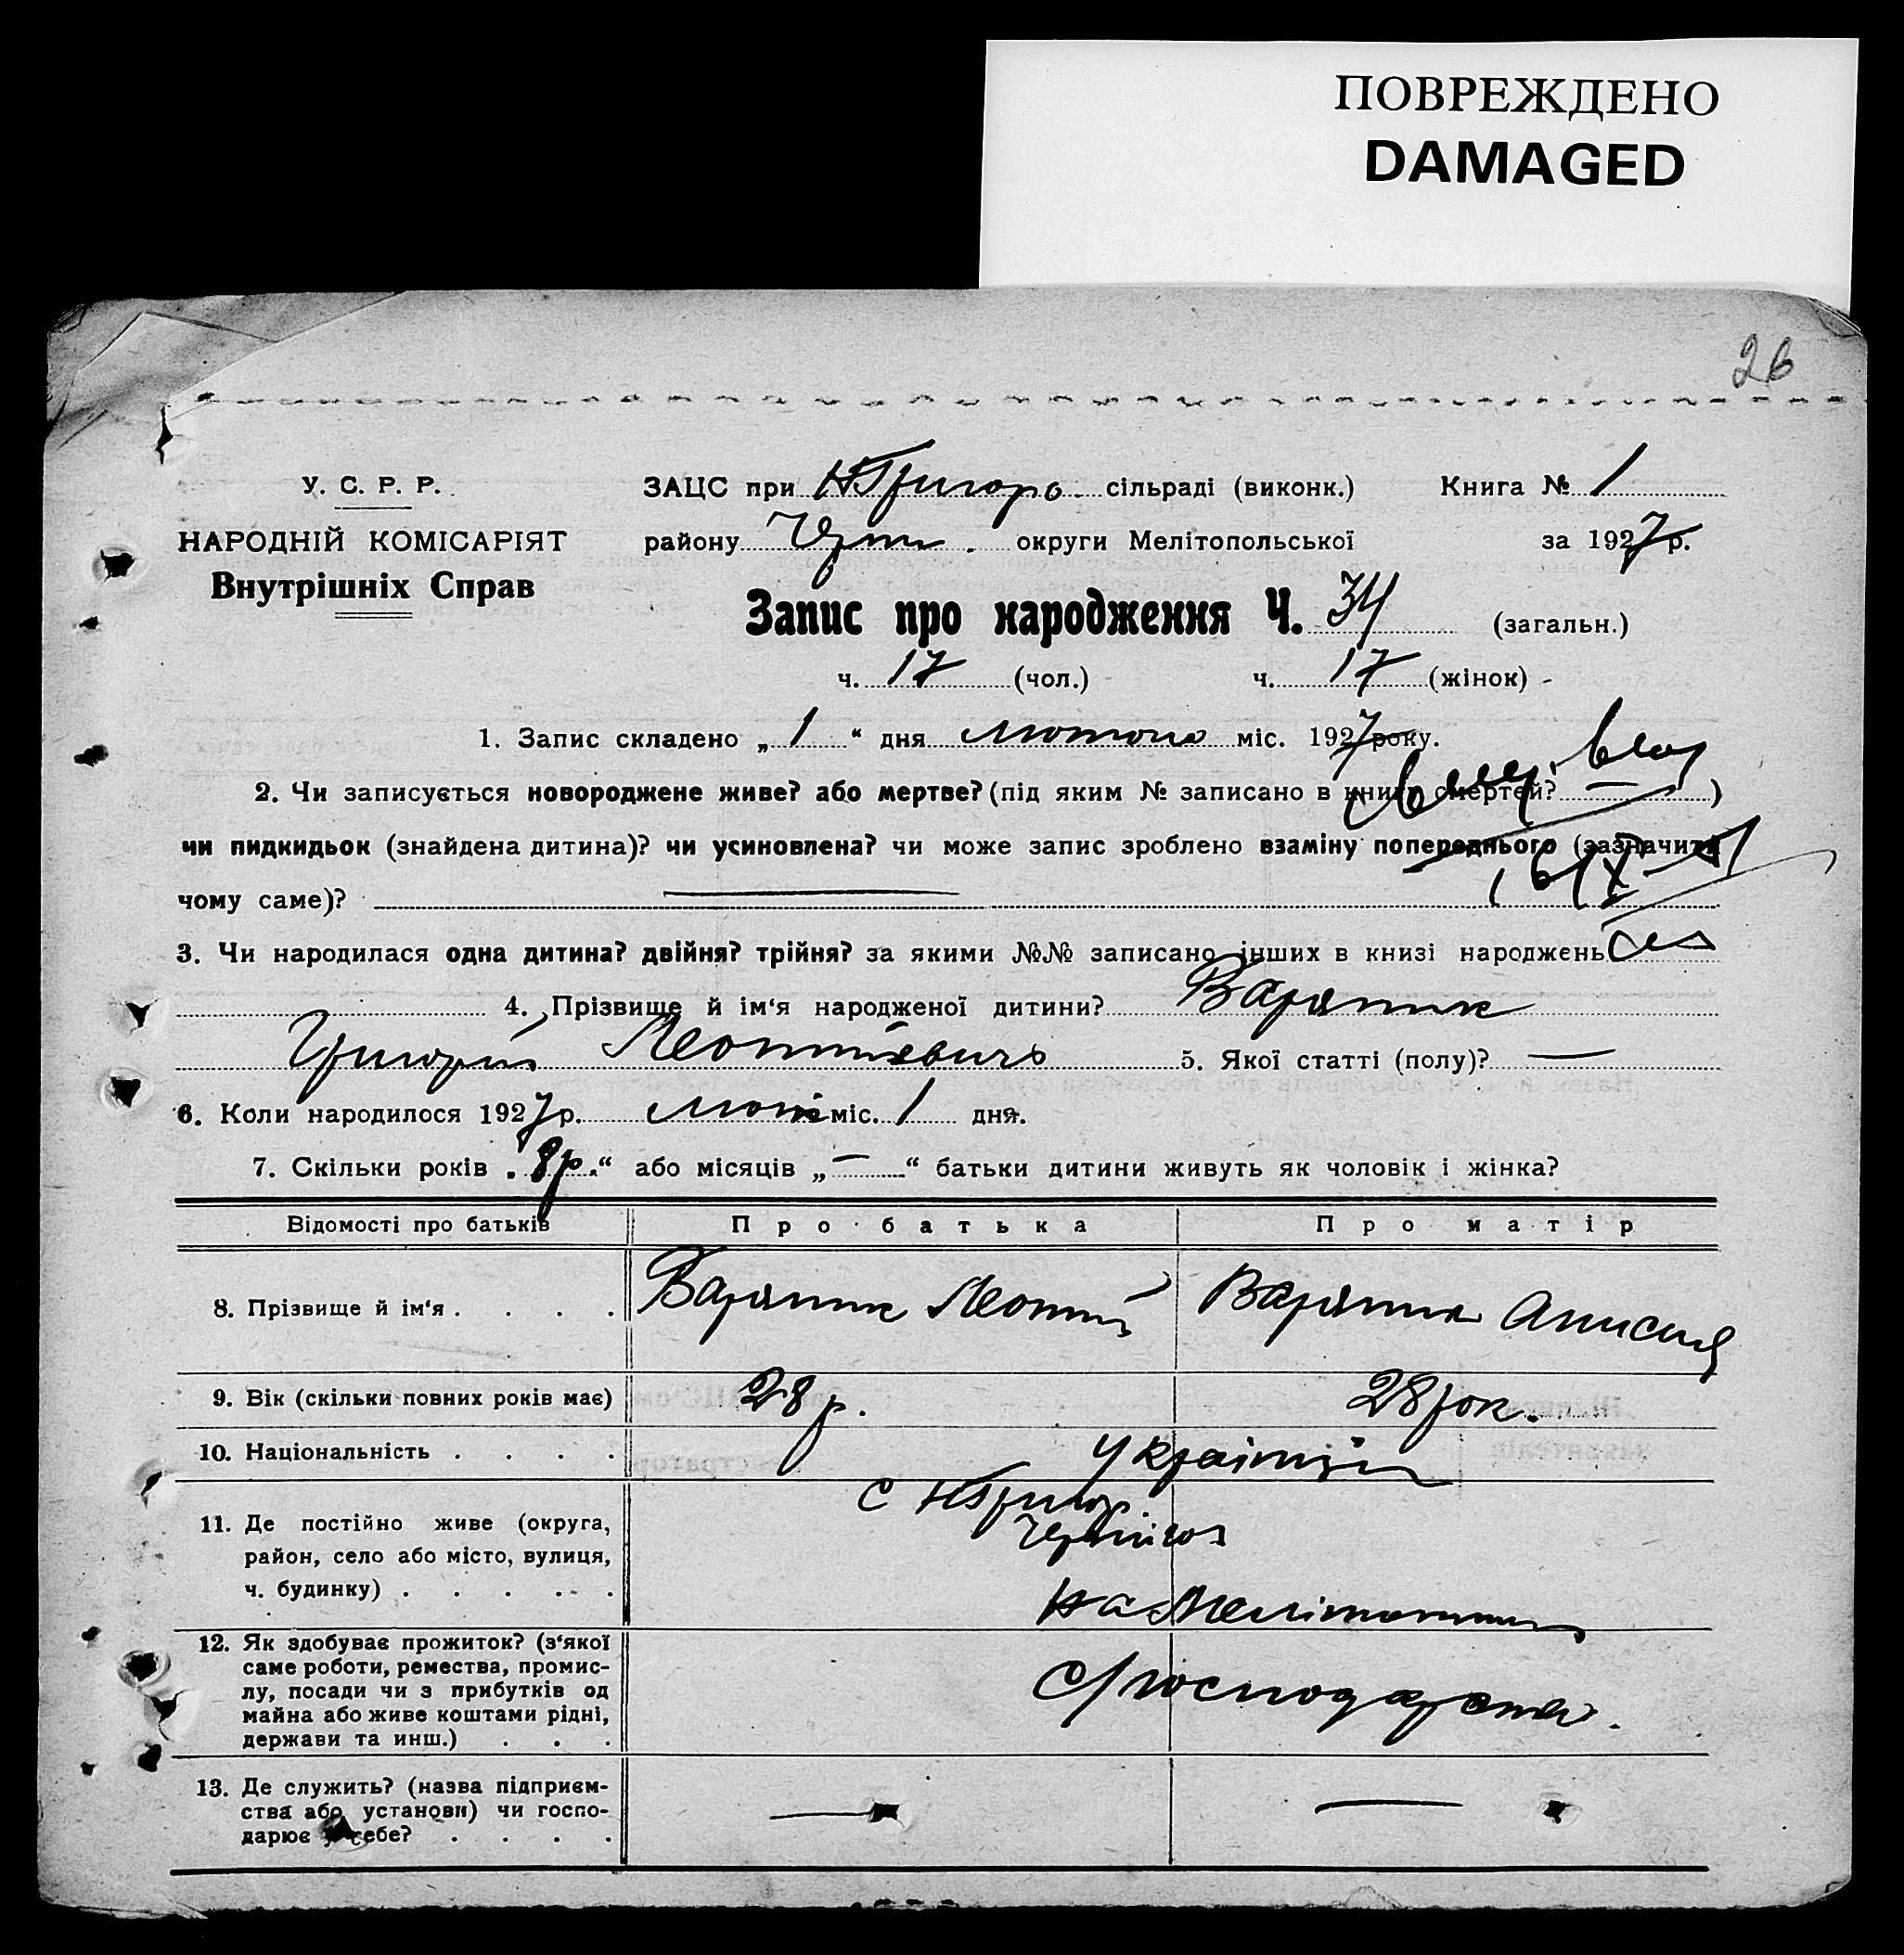 ПОВРЕЖДЕНО
DAMAGED
26
У. С. Р. Р.
НАРОДНІЙ КОМІСАРІЯТ
Внутрішніх Справ
ЗАЦС при НГригоро. сільраді (виконк.) Книга № 1
району округи Мелітопольської за 1927р.
Запис про народження Ч. 34 (загальн.)
ч. 17 (чол.) ч. 17 (жінок)
1. Запис складено „ 1 “ дня лютого міс. 1927 року.
2. Чи записується новороджене живе? або мертве? (під яким № записано в книгу смертей? — )
чи пидкидьок (знайдена дитина)? чи усиновлена? чи може запис зроблено взаміну попереднього (зазначити
чому саме)?
3. Чи народилася одна дитина? двійня? трійня? за якими №№ записано інших в книзі народжень
4. Прізвище й ім‘я народженої дитини? Варяник
Григорій Леонтіевичь 5. Якої статті (полу)? —
6. Коли народилося 1927р. міс. 1 дня.
7. Скільки років „ 8р. “ або місяців „ — “ батьки дитини живуть як чоловік і жінка?
Відомості про батьків Про батька Про матір
8. Прізвище й ім‘я . . . . Варяник Леонтій Варяник Анисия
9. Вік (скільки повних років має) 28 р. 28 рок.
10. Національність . . . . Українці
11. Де постійно живе (округа, район, село або місто, вулиця, ч. будинку) . . . . . с НГригор.
на Мелітопольщ
12. Як здобуває прожиток? (з‘якої
саме роботи, ремества, промис-
лу, посади чи з прибутків од
майна або живе коштами рідні,
держави та инш.) . . . С/господарство.
13. Де служить? (назва підприєм-
ства або установи) чи госпо-
дарює у себе? . . . . — —